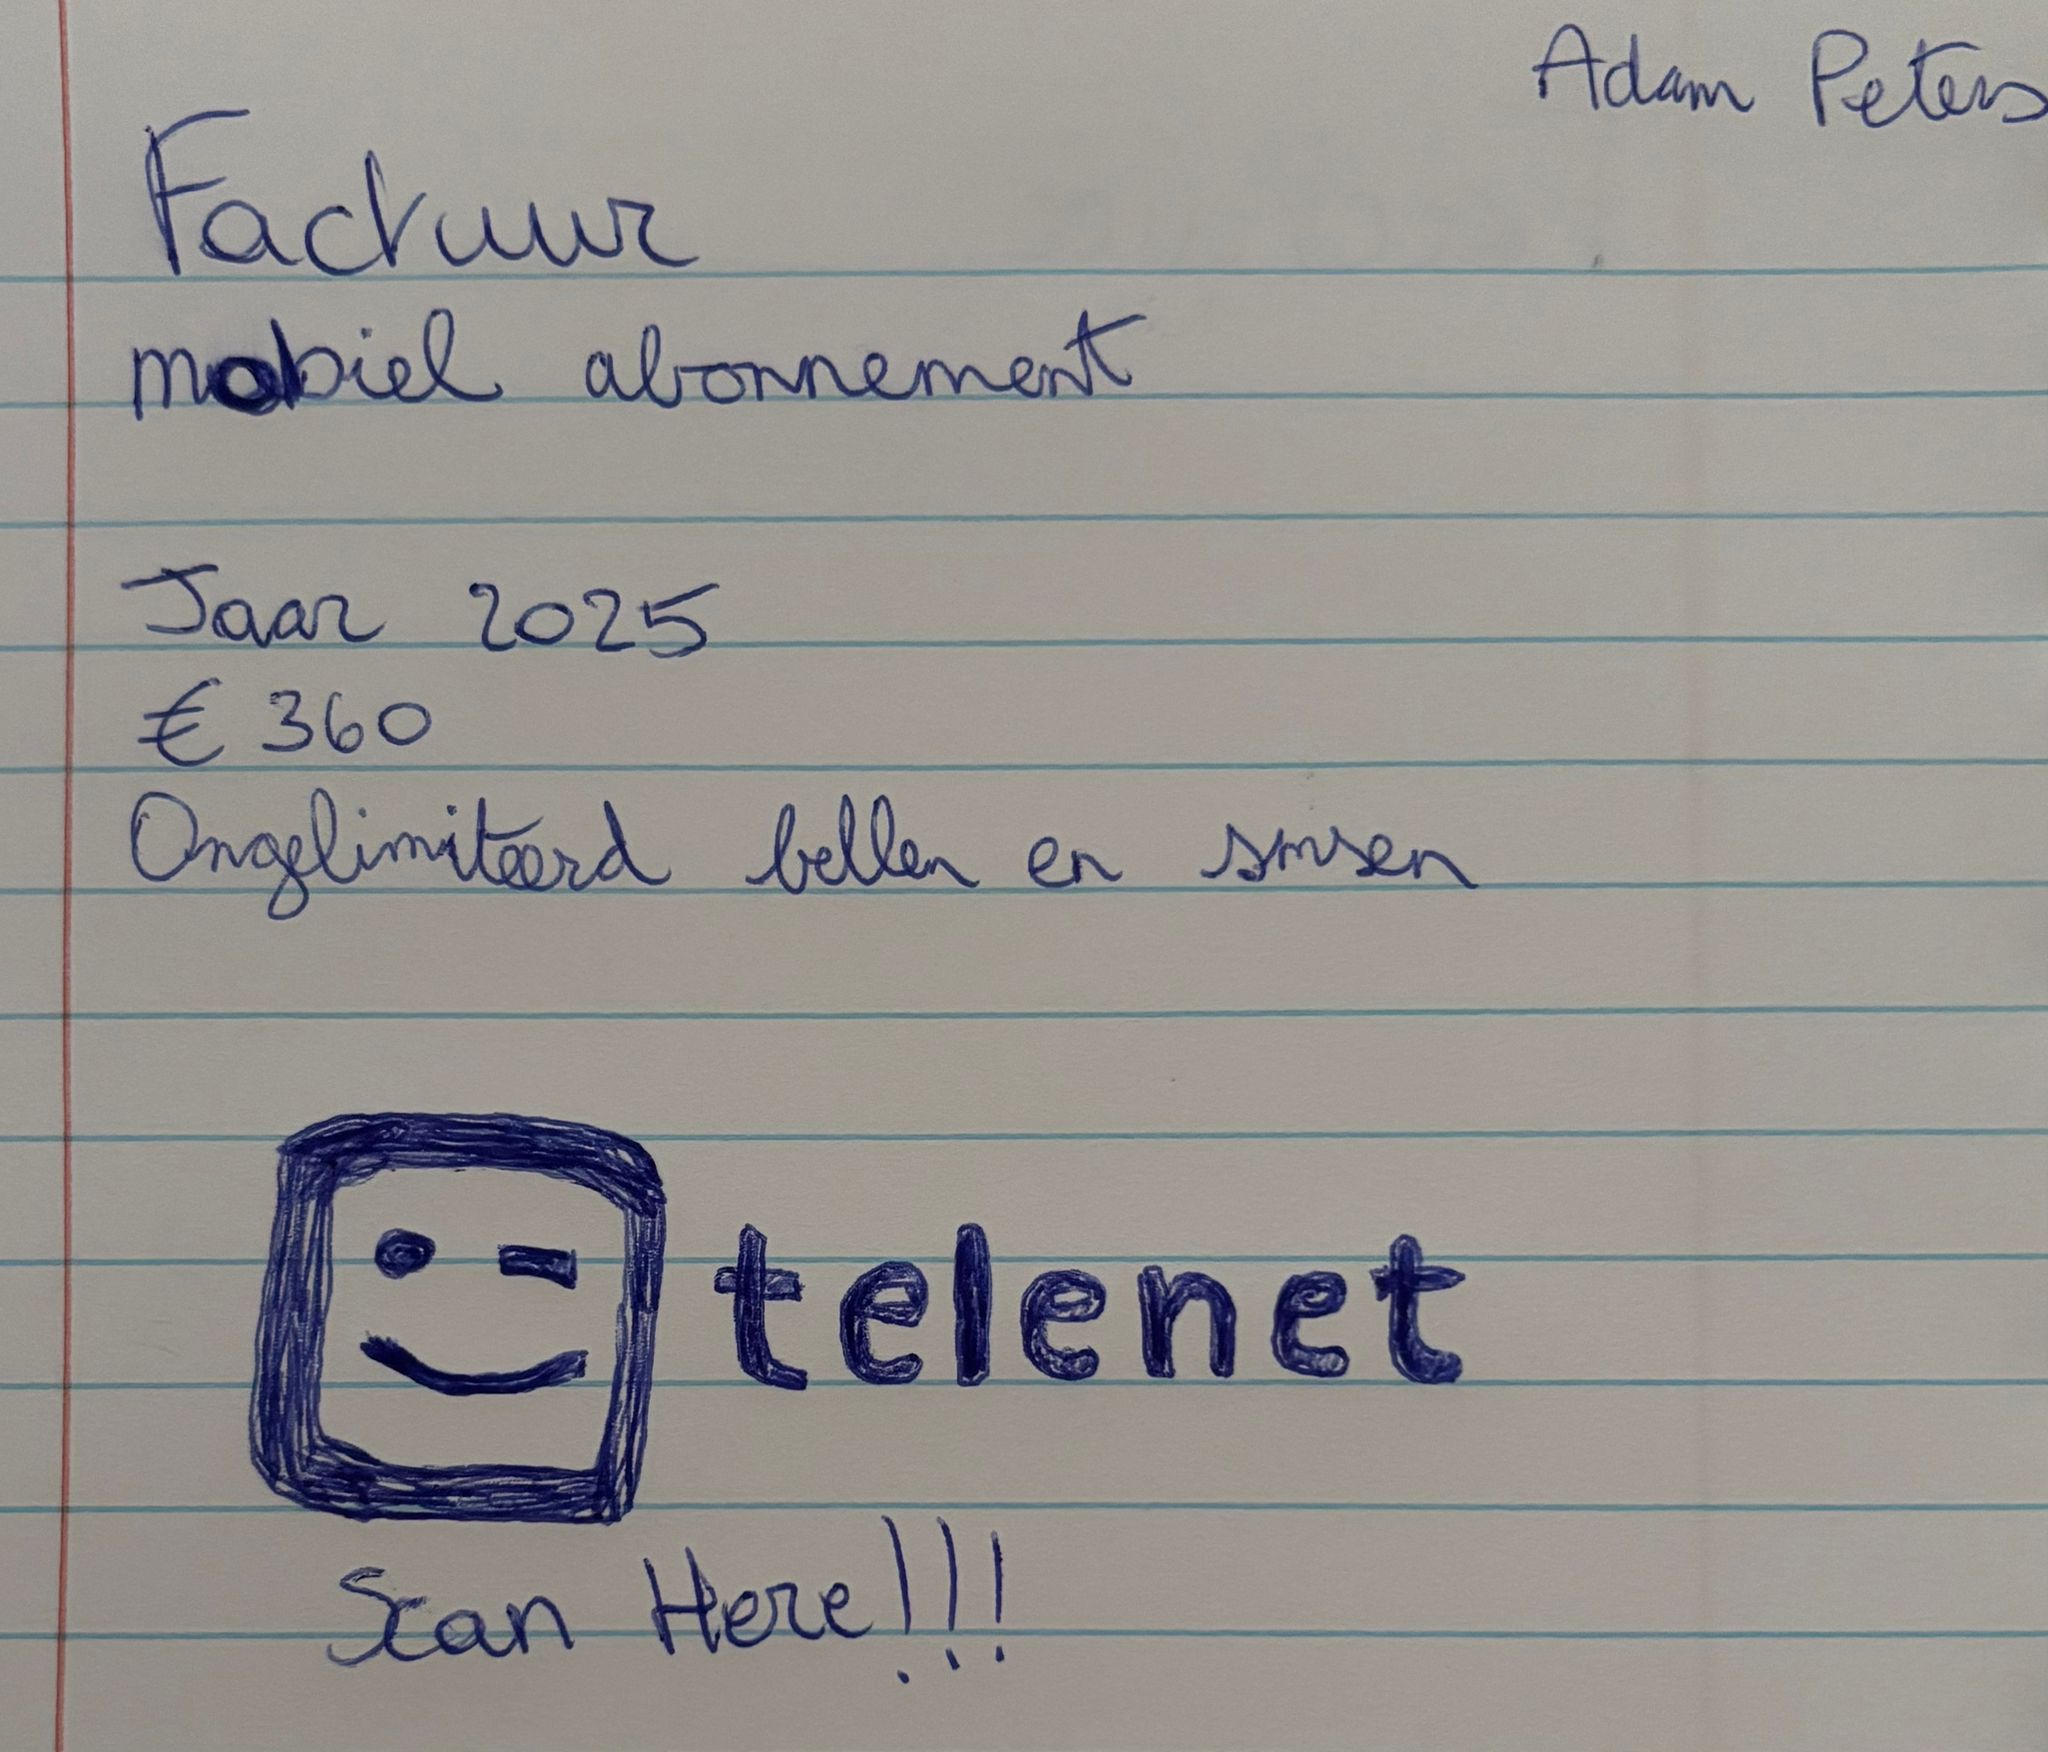 Adam Peters
Factuur
mobiel abonnement
Jaar 2025
€ 360
Ongelimiteerd bellen en smsen
telenet
Scan Here!!!